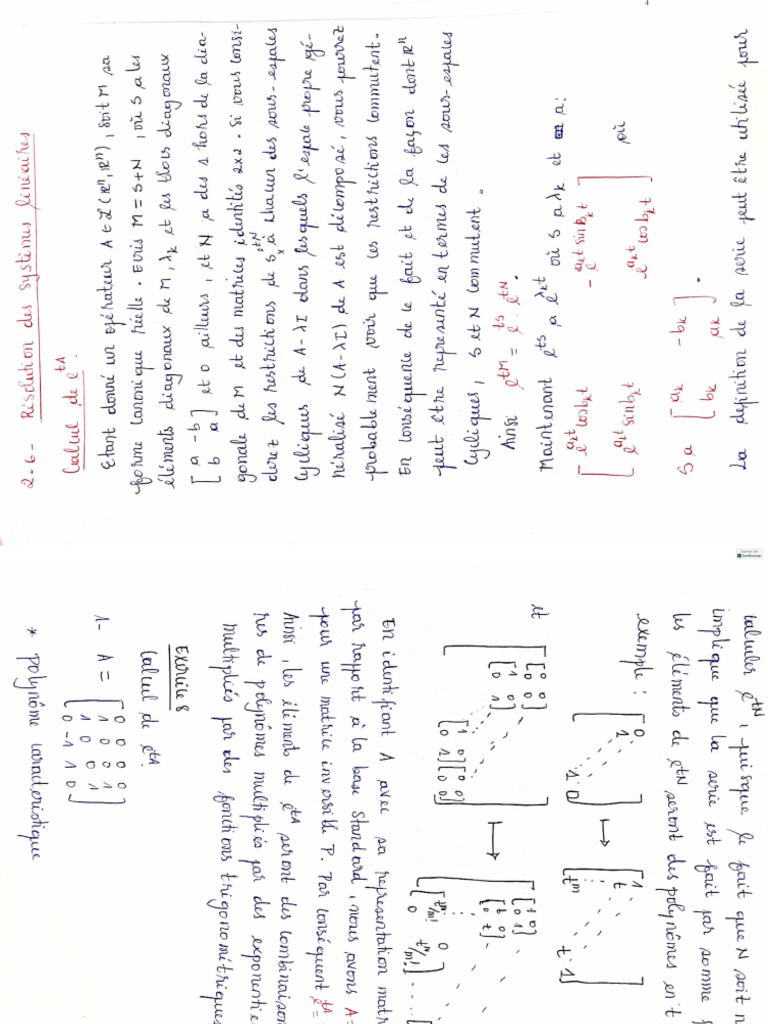 2-6- Résolution des systèmes linéaires
Calcul de e^tA.
Etant donné un opérateur A ∈ L(R^n, R^n), soit M sa
forme canonique réelle. Ecris M = S+N, où S a les
éléments diagonaux de M, λk et les blocs diagonaux
[a -b
b a] et 0 ailleurs, et N a des 1 hors de la dia-
gonale de M et des matrices identités 2x2. Si vous consi-
dérez les restrictions de S et N à chacun des sous-espaces
cycliques de A-λI dans lesquels l'espace propre gé-
néralisé N(A-λI) de A est décomposé, vous pourrez
probablement voir que ces restrictions commutent.
En conséquence de ce fait et de la façon dont R^n
peut être représenté en termes de ces sous-espaces
cycliques, S et N commutent.
Ainsi e^tM = e^tS . e^tN.
Maintenant e^tS a e^λkt où S a λk et a:
[e^akt cos bkt - e^akt sin bkt
e^akt sin bkt e^akt cos bkt] où
S a [ak -bk
bk ak].
La définition de la serie peut être utilisée pour
calculer e^tN, puisque le fait que N soit n
implique que la serie est fait par somme f
les éléments de e^tN seront des polynômes en t
exemple :
[0
1
1 0] ↦ [1
t
t^m t 1]
et
[0 0
0 0]
[1 0
0 1]
[1 0
0 1] [0 0
0 0] ↦ [1 0
0 1]
[t 0
0 t]
[t^m/m! 0
0 t^m/m!]
En identifiant A avec sa representation matr
par rapport à la base Standard, nous avons A=
pour une matrice inversible P. Par conséquent e^tA =
Ainsi, les éléments de e^tA seront des combinaison
res de polynômes multipliés par des exponentie
multipliés par des fonctions trigonométriques
Exercice 8
Calcul de e^tA:
1- A = [0 0 0 0
1 0 0 1
1 0 0 1
0 -1 1 0]
* Polynôme caractéristique